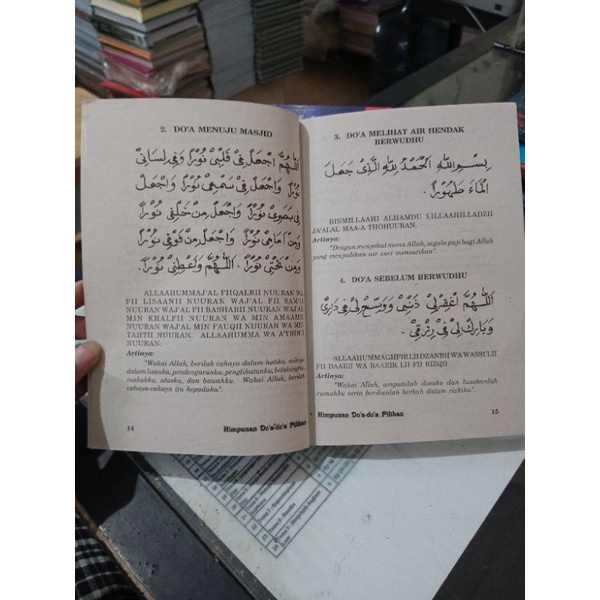 2. DO'A MENUJU MASJID
اَللّٰهُمَّ اجْعَلْ فِيْ قَلْبِيْ نُوْرًا وَفِيْ لِسَانِيْ
نُوْرًا وَاجْعَلْ فِيْ سَمْعِيْ نُوْرًا وَاجْعَلْ
فِيْ بَصَرِيْ نُوْرًا وَاجْعَلْ مِنْ خَلْفِيْ نُوْرًا
وَمِنْ اَمَامِيْ نُوْرًا وَاجْعَلْ مِنْ فَوْقِيْ نُوْرًا
وَمِنْ تَحْتِيْ نُوْرًا. اَللّٰهُمَّ وَاَعْطِنِيْ نُوْرًا.
ALLAAHUMMAJ'AL FIIQALBII NUURAN WA
FII LISAANII NUURAN WAJ'AL FII SAM'II
NUURAN WAJ'AL FII BASHARII NUURAN WAJ'AL
MIN KHALFII NUURAN WA MIN AMAAMII
NUURAN WAJ'AL MIN FAUQII NUURAN WA MIN
TAHTII NUURAN. ALLAAHUMMA WA A'THINII
NUURAN.
Artinya:
"Wahai Allah, berilah cahaya dalam hatiku, cahaya
dalam lisanku, pendengaranku, penglihatanku, belakangku,
mukahku, atasku, dan bawahku. Wahai Allah, berilah
cahaya-cahaya itu kepadaku".
14
Himpunan Do'a-do'a Pilihan
3. DO'A MELIHAT AIR HENDAK
BERWUDHU
بِسْمِ اللّٰهِ اَلْحَمْدُ لِلّٰهِ الَّذِيْ جَعَلَ
الْمَاءَ طَهُوْرًا.
BISMILLAAHI ALHAMDU LILLAAHILLADZII
JA'ALAL MAA-A THOHUURAN.
Artinya:
"Dengan menyebut nama Allah, segala puji bagi Allah
yang menjadikan air suci mensucikan".
4. DO'A SEBELUM BERWUDHU
اَللّٰهُمَّ اغْفِرْلِيْ ذَنْبِيْ وَوَسِّعْ لِيْ فِيْ دَارِيْ
وَبَارِكْ لِيْ فِيْ رِزْقِيْ.
ALLAAHUMMAGHFIRLII DZANBII WA WASSI'LII
FII DAARII WA BAARIK LII FII RIZQII.
Artinya:
"Wahai Allah, ampunilah dosaku dan luaskanlah
rumahku serta berikanlah berkah dalam rizkiku".
Himpunan Do'a-do'a Pilihan
15